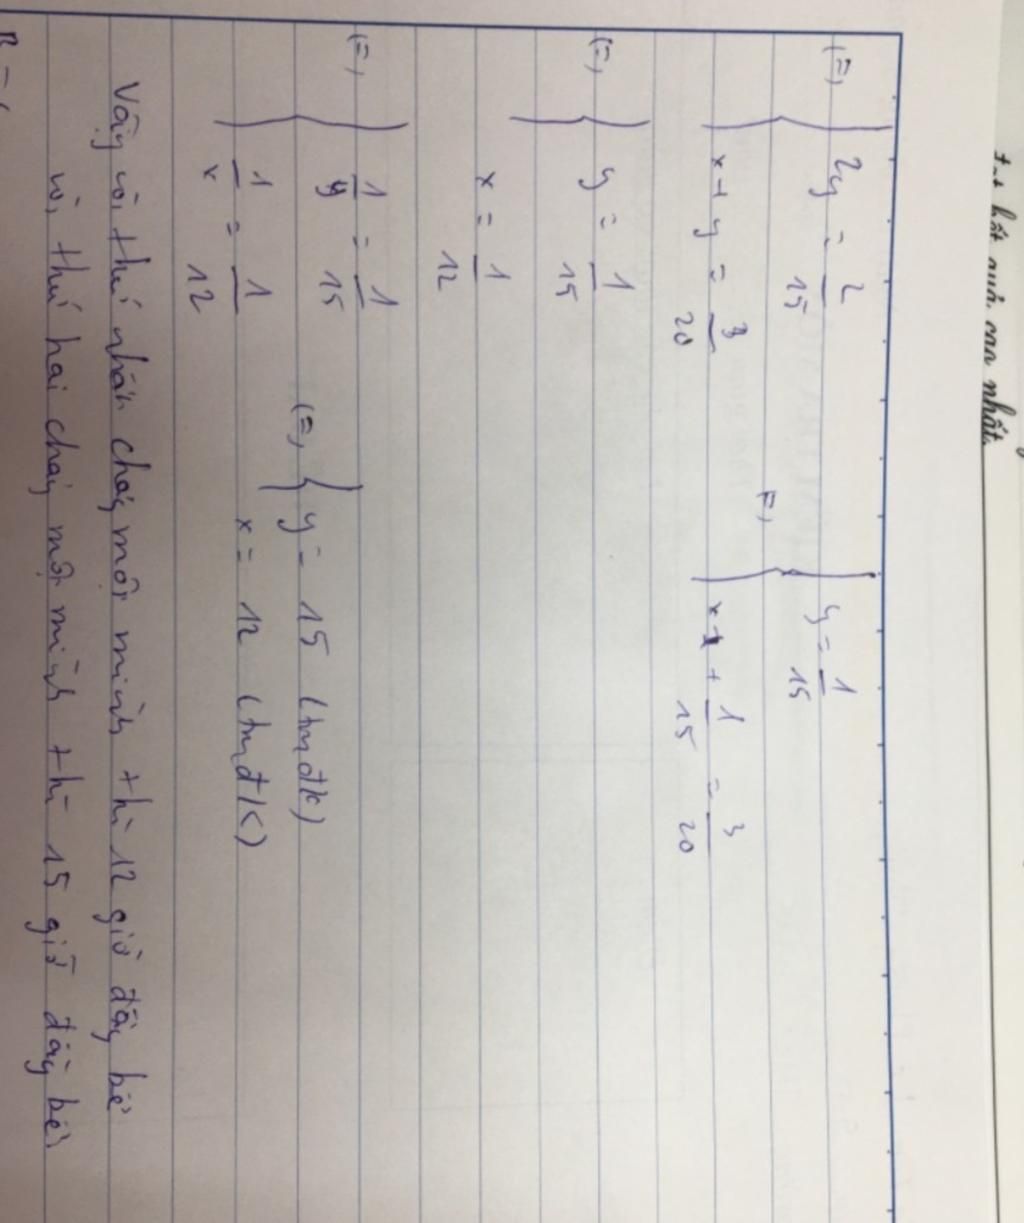 đạt kết quả cao nhất.
(=) { 2y = 2/15
x + y = 3/20
(=) { y = 1/15
x + 1/15 = 3/20
(=) { y = 1/15
x = 1/12
(=) { 1/y = 1/15
1/x = 1/12
(=) { y = 15 (tmđk)
x = 12 (tmđk)
Vậy vòi thứ nhất chảy một mình thì 12 giờ đầy bể
vòi thứ hai chảy một mình thì 15 giờ đầy bể